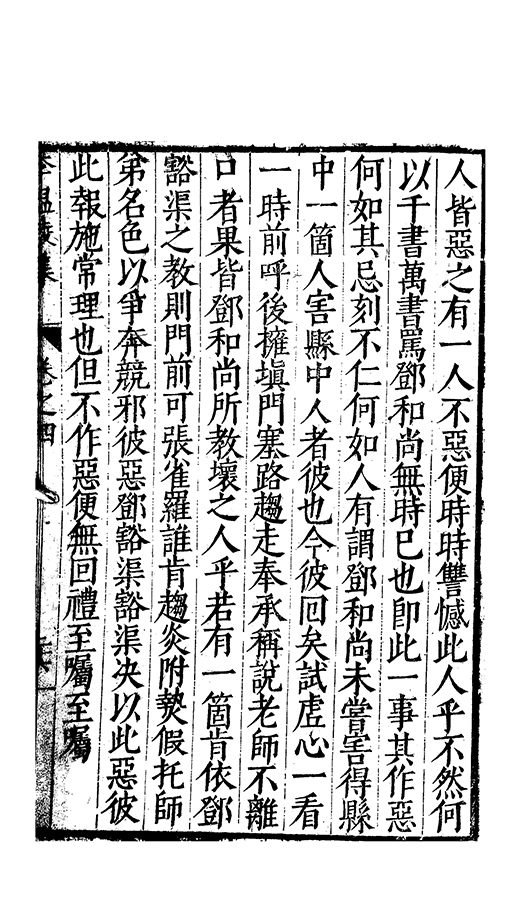 人皆惡之有一人不惡便時時讐憾此人乎不然何
以千書萬書罵鄧和尚無時已也卽此一事其作惡
何如其忌刻不仁何如人有謂鄧和尚未嘗害得縣
中一箇人害縣中人者彼也今彼回矣試虛心一看
一時前呼後擁塡門塞路趨走奉承稱說老師不離
口者果皆鄧和尚所教壞之人乎若有一箇肯依鄧
豁渠之教則門前可張雀羅誰肯趨炎附𤍠假托師
弟名色以爭奔競邪彼惡鄧豁渠豁渠决以此惡彼
此報施常理也但不作惡便無回禮至囑至囑
李溫陵集 卷之四